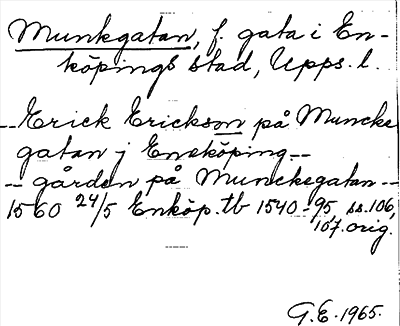 Munkgatan, f. gata i En-
köpings stad, Upps. l.
-- Erick Erickson på Muncke
gatan j Eneköping --
-- gården på Munckegatan --
1560 24/5 Enköp. tb 1540-95, ss. 106,
107. orig.
G. E. 1965.